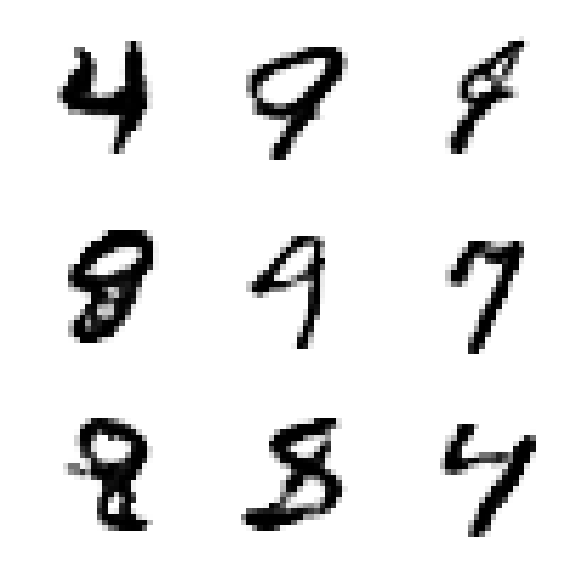 4 9 9
8 9 7
8 8 4